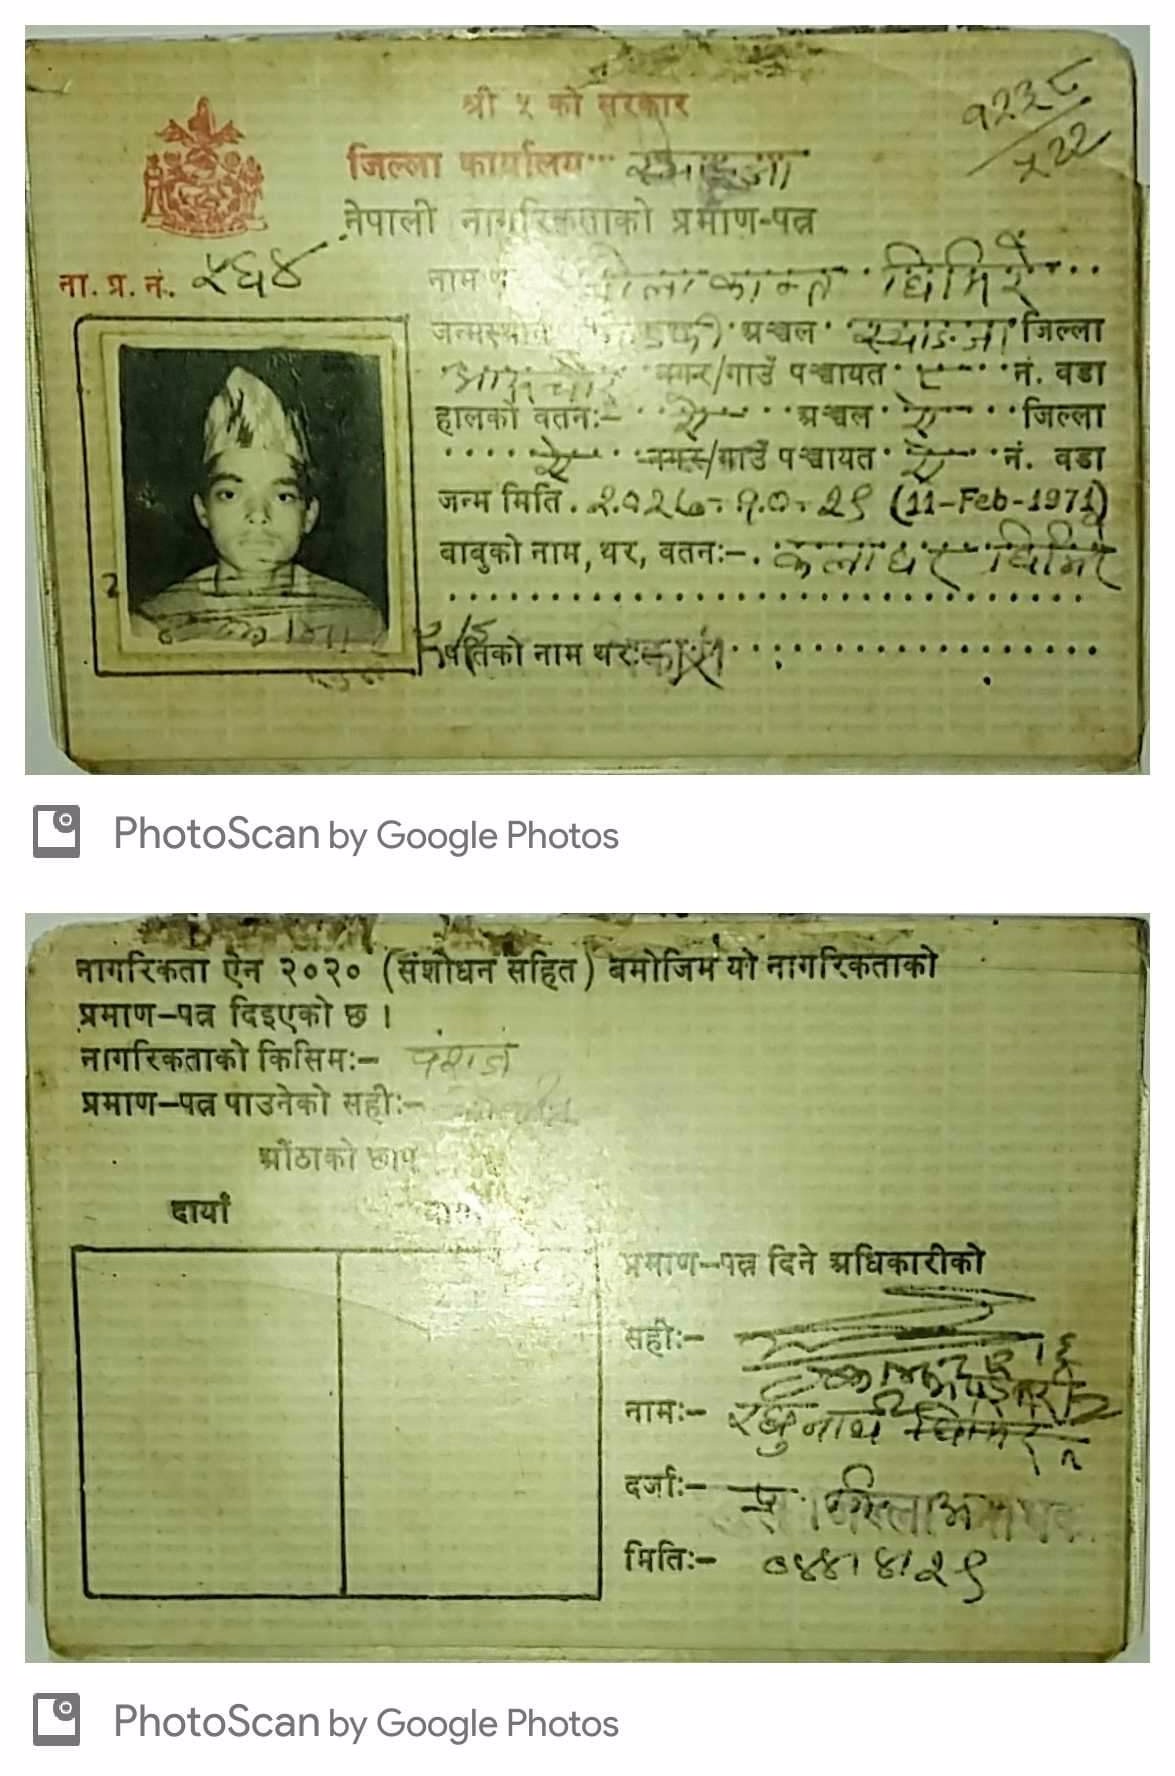 श्री ५ को सरकार
१२३८
५२२
जिल्ला कार्यालय स्याङजा
नेपाली नागरिकताको प्रमाण-पत्र
ना. प्र. नं. ५६४
नाम घिमिरे
जन्मस्थान अञ्चल स्याङजा जिल्ला
नगर/गाउँ पञ्चायत नं. वडा
हालको वतनः- ऐ अञ्चल ऐ जिल्ला
ऐ नगर/गाउँ पञ्चायत ऐ नं. वडा
जन्म मिति. २०२७-१०-२९ (11-Feb-1971)
बाबुको नाम, थर, वतनः- कलाधर घिमिरे
पतिको नाम थरः
PhotoScan by Google Photos
नागरिकता ऐन २०२० (संशोधन सहित) बमोजिम यो नागरिकताको
प्रमाण-पत्र दिइएको छ ।
नागरिकताको किसिमः- वंशज
प्रमाण-पत्र पाउनेको सहीः-
औंठाको छाप
दायाँ
प्रमाण-पत्र दिने अधिकारीको
सहीः-
नामः- रघुनाथ घिमिरे
दर्जाः-
मितिः- ०४४।४।२९
PhotoScan by Google Photos